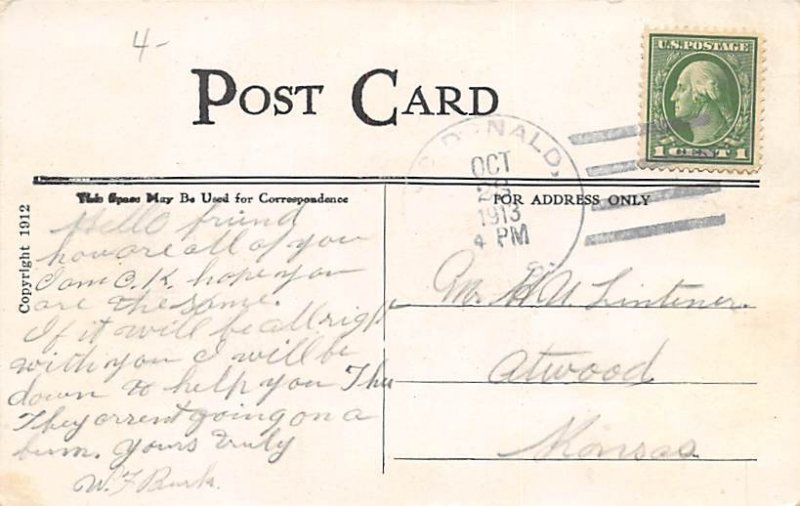 4-
POST CARD
U.S. POSTAGE
1 CENT 1
DONALD,
OCT
28
1913
4 PM
This Space May Be Used for Correspondence
FOR ADDRESS ONLY
Copyright 1912
Hello friend
how are all of you
I am O.K. hope you
are the same.
If it will be all right
with you I will be
down to help you Thu
They arrent going on a
bum. Yours truly
W. F. Burk.
Mr. H. U. Lintener.
Atwood
Kansas